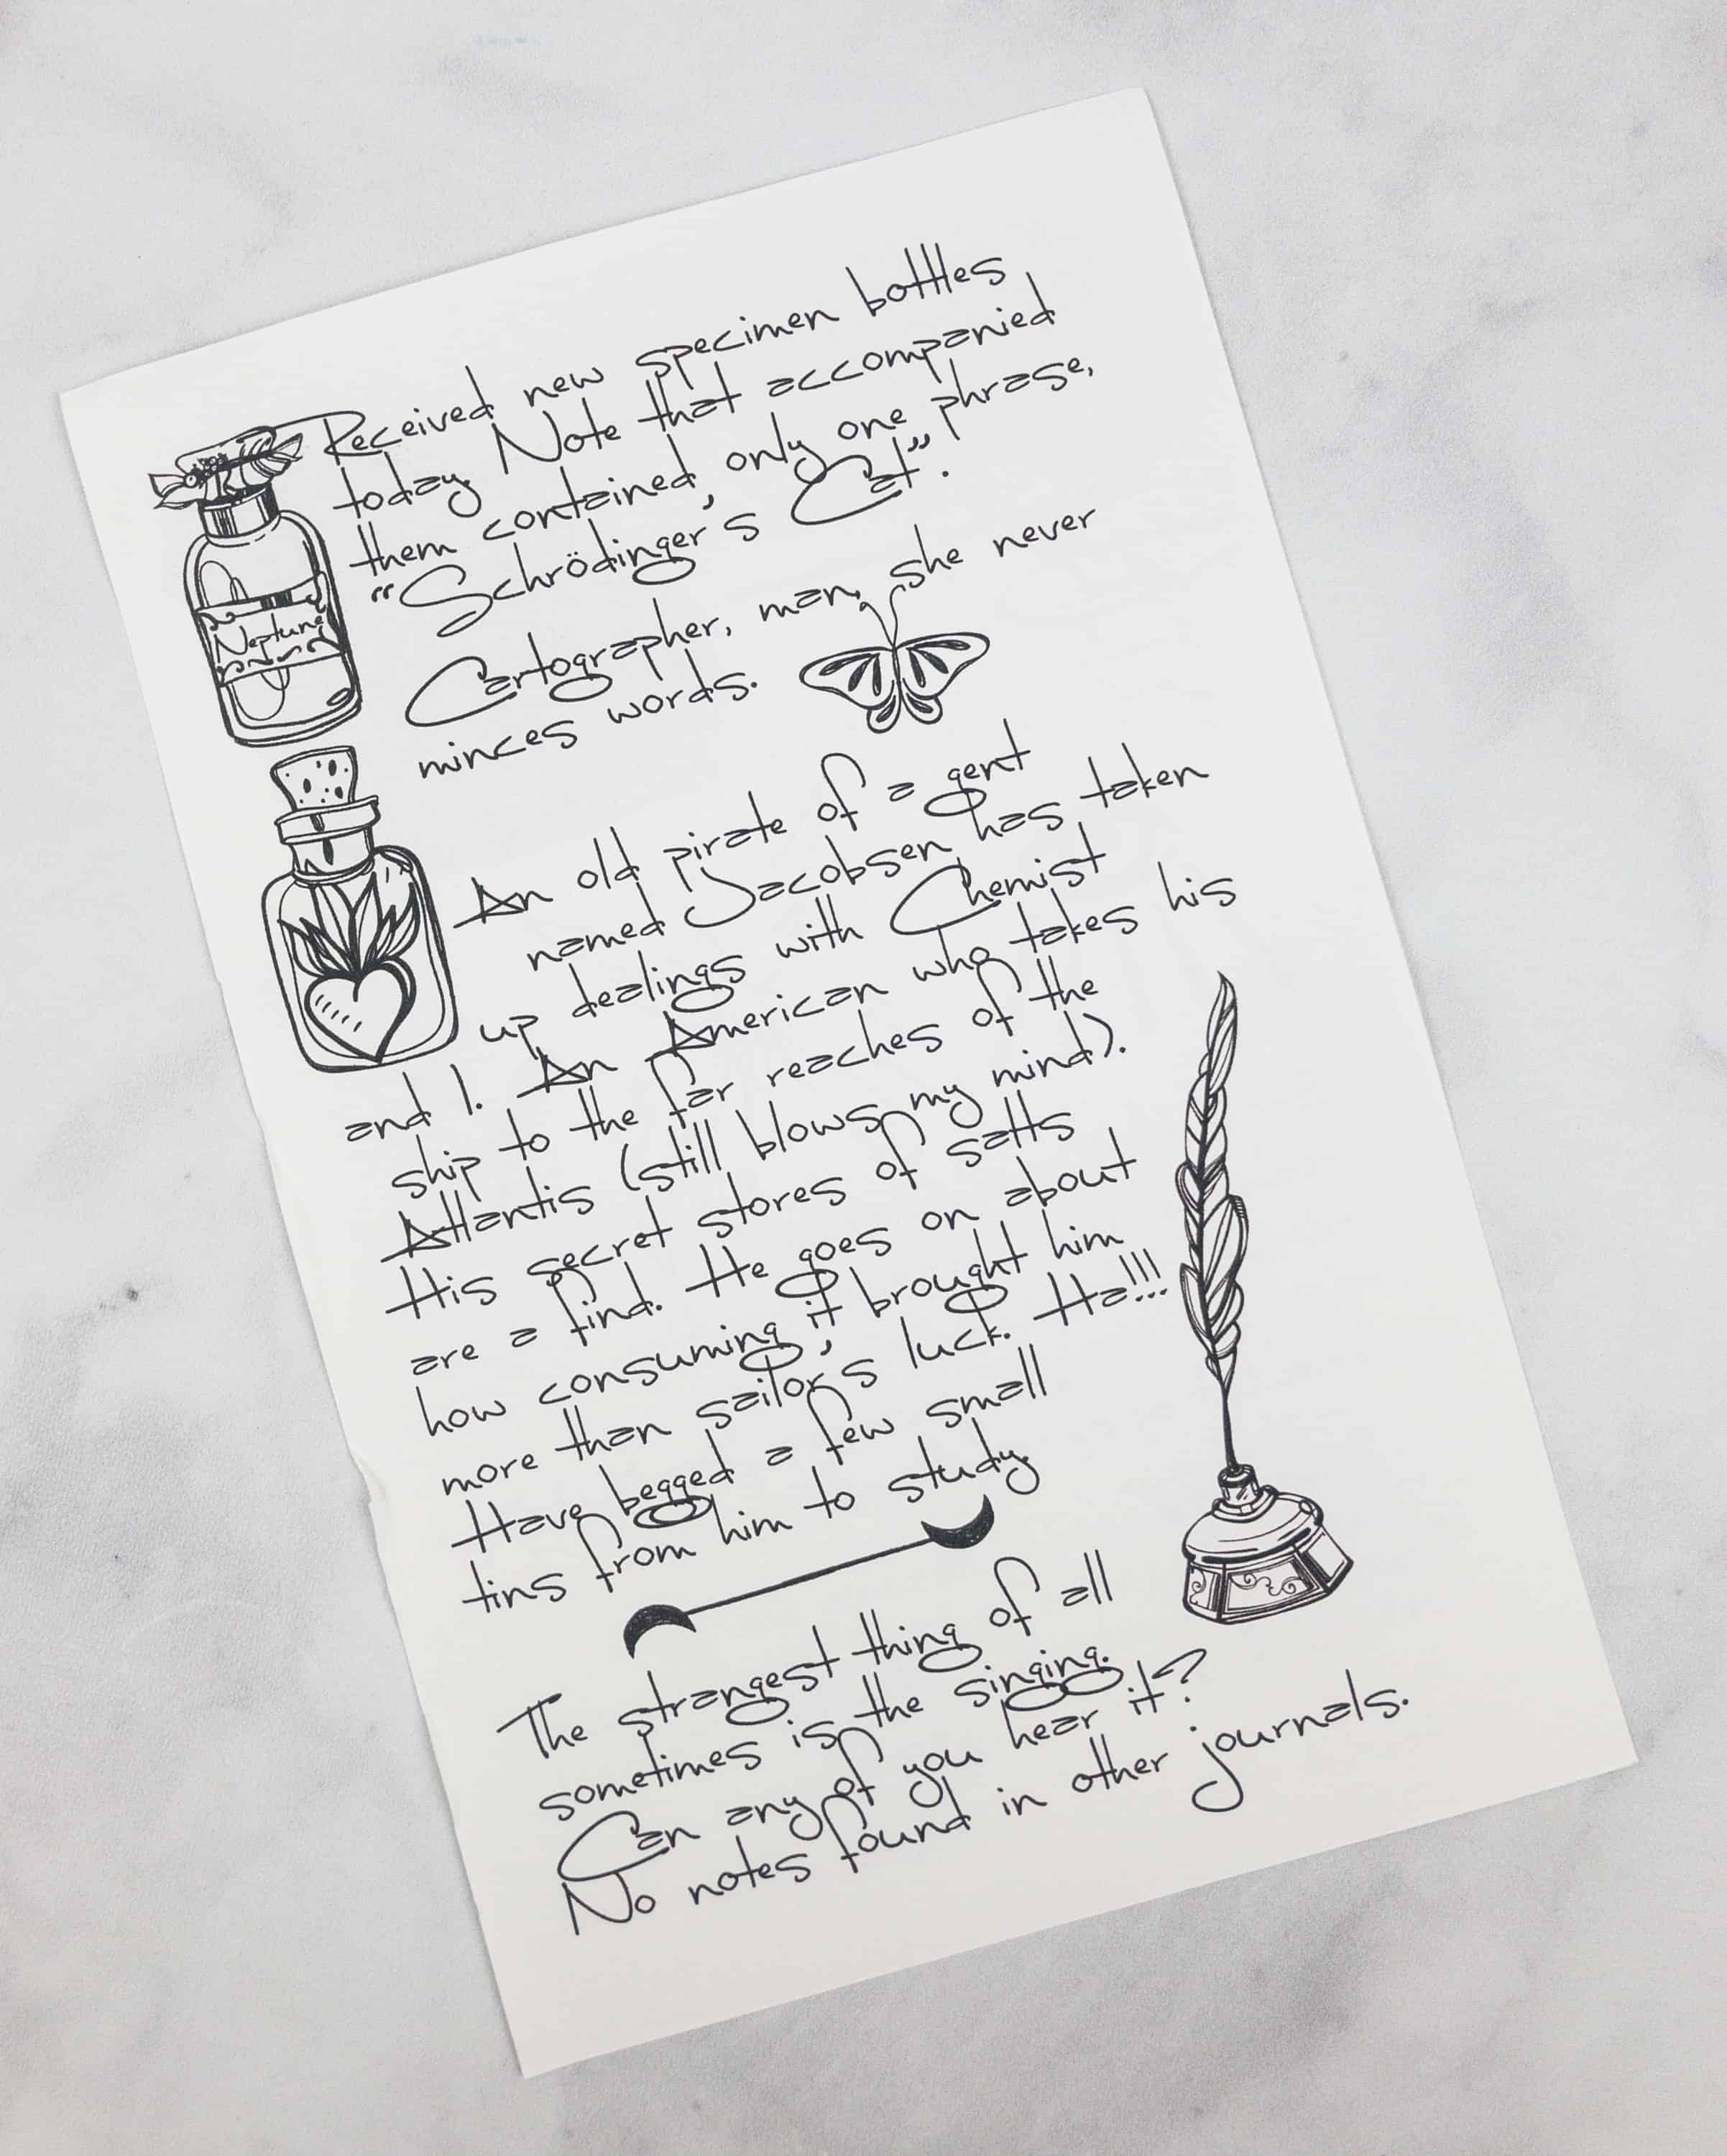 Received new specimen bottles
today. Note that accompanied
them contained, only one phrase,
“Schrödinger's Cat”.
Neptune
Cartographer, man, she never
minces words.
An old pirate of a gent
named Jacobsen has taken
up dealings with Chemist
and I. An American who takes his
ship to the far reaches of the
Atlantis (still blows my mind).
His secret stores of salts
are a find. He goes on about
how consuming it, brought him
more than sailor's luck. Ha!!!
Have begged a few small
tins from him to study.
The strangest thing of all
sometimes is the singing.
Can any of you hear it?
No notes found in other journals.